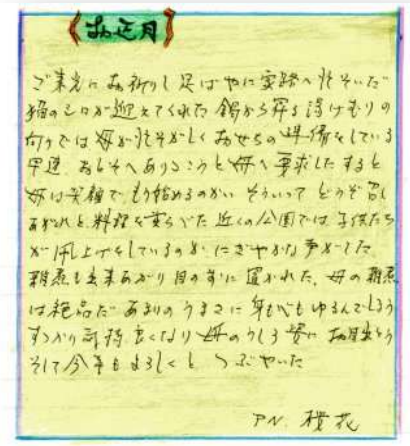 お正月
ご来光にお祈りし足ばやに家路へといそいだ
猫のシロが迎えてくれた 鍋から昇る湯けむりの
向うでは母が忙そがしくおせちの準備をしている
早速、おとそへありつこうと母へ要求した すると
母は笑顔で もう始めるのかい そういって どうぞ召し
あがれと料理を並らべた 近くの公園では子供たち
が凧上げをしているのか にぎやかな声がした
雑煮も出来あがり目の前に置かれた、母の雑煮
は絶品だ あまりのうまさに身も心もゆるんでしまう
すっかり気持良くなり 母のうしろ姿に お目出とう
そして今年もよろしくと つぶやいた
PN. 桜花